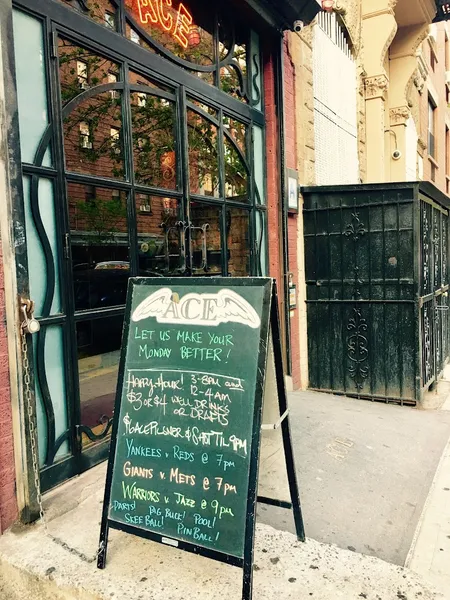 ACE
ACE
LET US MAKE YOUR
MONDAY BETTER!
HAPPY HOUR! 3-8PM and
12-4AM
$3 OR $4 WELL DRINKS
OR DRAFTS
$6 ACE PILSNER & SHOT TIL 9PM
YANKEES v. REDS @ 7pm
GIANTS v. METS @ 7pm
WARRIORS v. JAZZ @ 9pm
DARTS! BIG BUCK! POOL!
SKEE BALL! PIN BALL!